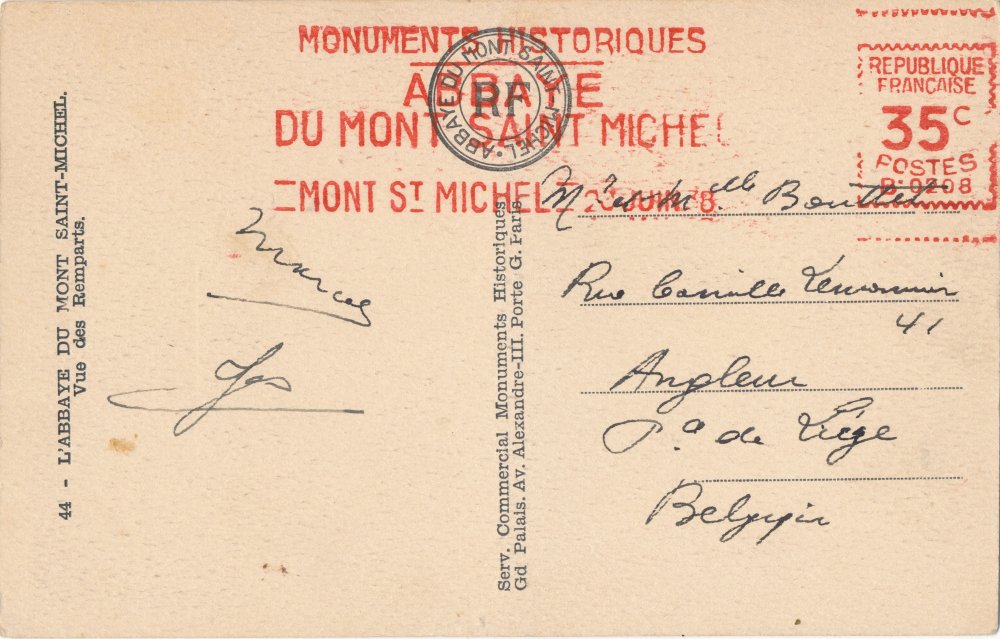 MONUMENTS HISTORIQUES
ABBAYE
DU MONT SAINT MICHEL
MONT ST MICHEL
ABBAYE DU MONT SAINT MICHEL
RF
REPUBLIQUE
FRANCAISE
35c
POSTES
D.0208
44 - L'ABBAYE DU MONT SAINT-MICHEL.
Vue des Remparts.
Marcel
Serv. Commercial Monuments Historiques
Gd Palais. Av. Alexandre-III. Porte G. Paris.
Rue Camille Lemonnier
41
Angleur
Pce de Liége
Belgique